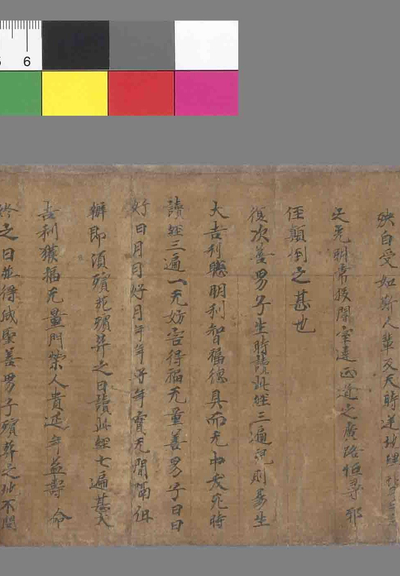 6
殃自受如斯人輩反天時逆地理背
之光明常投闇室違正道之廣路恒尋邪
徑顛倒之甚也
復次善男子生時讀此經三遍兒則易生
大吉利聰明利智福德具而无中夭死時
讀經三遍一无妨害得福无量善男子日日
好日月月好月年年好年實无間隔但
辦即須殯葬殯葬之日讀此經七遍甚大
吉利獲福无量門榮人貴延年益壽命
終之日並得成聖善男子殯葬之地不問